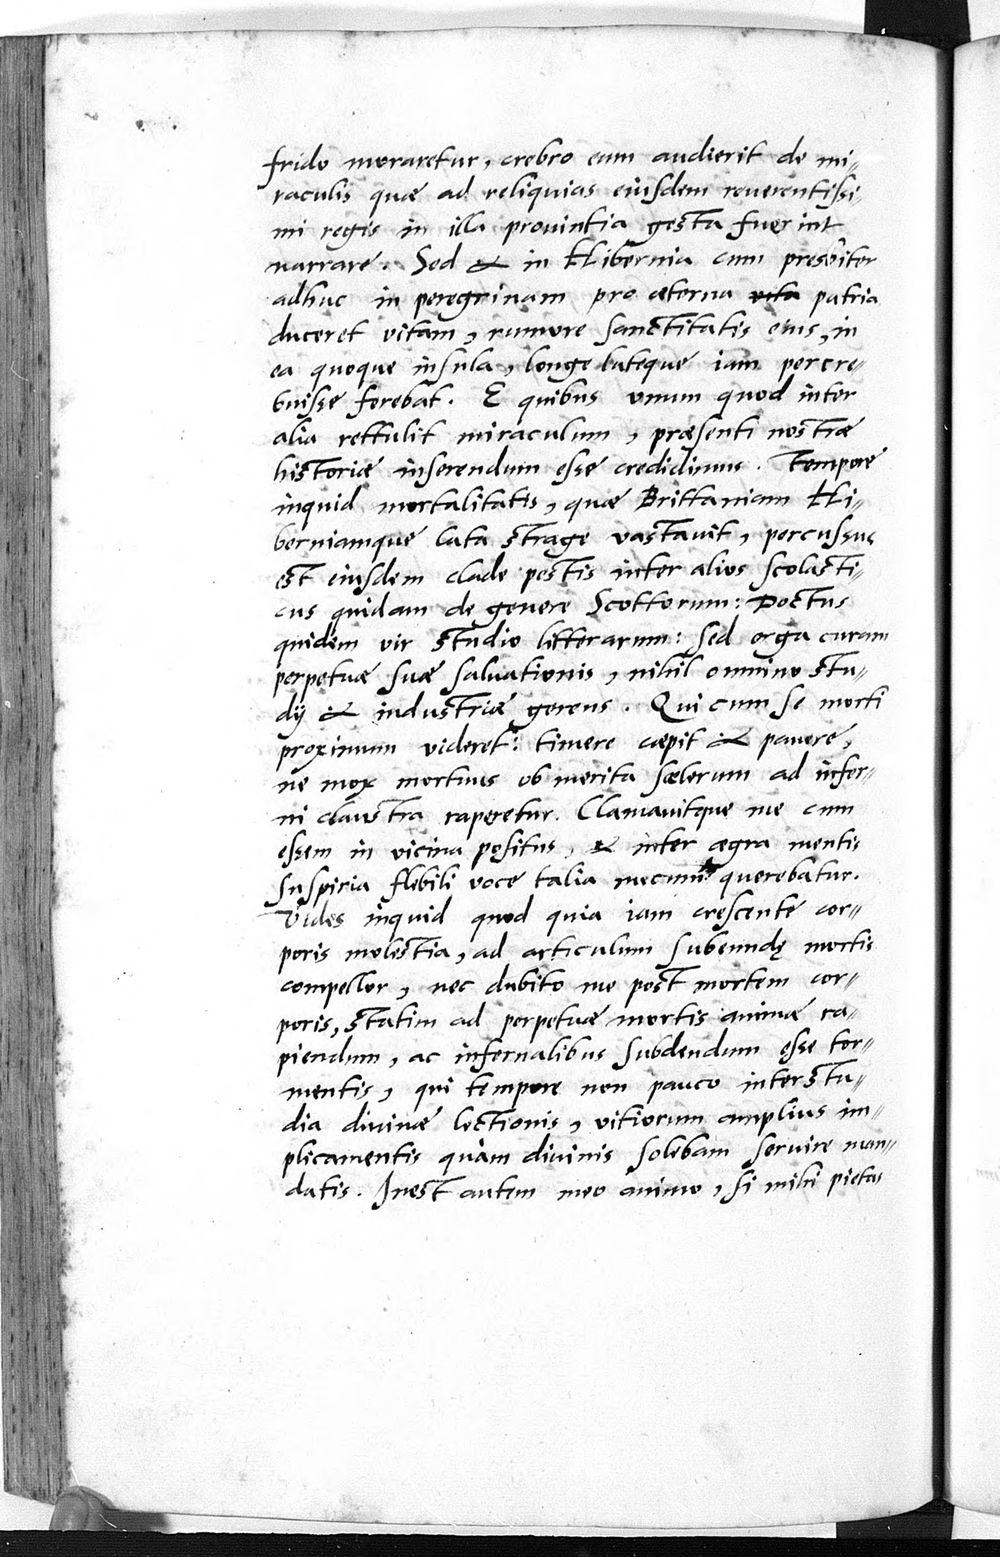 frido moraretur, crebro eum audierit de mi-
raculis quæ ad reliquias eiusdem reuerentissi-
mi regis in illa prouintia gesta fuerint
narrare. Sed & in Hibernia cum presbiter
adhuc in peregrinam pro æterna vita patria
duceret vitam, rumore sanctitatis eius, in
ea quoque insula, longe lateque iam percre-
buisse ferebat. E quibus vnum quod inter
alia rettulit miraculum, præsenti nostræ
historiæ inserendum esse credidimus. Tempore
inquid mortalitatis, quæ Brittaniam Hi-
berniamque lata strage vastauit, percussus
est eiusdem clade pestis inter alios scolasti-
cus quidam de genere Scottorum: Doctus
quidem vir studio litterarum: sed erga curam
perpetuæ suæ saluationis, nihil omnino stu-
dij & industriæ gerens. Qui cum se morti
proximum videret: timere cæpit & pauere,
ne mox mortuus ob merita scelerum ad infer-
ni claustra raperetur. Clamauitque me cum
essem in vicina positus, & inter ægra mentis
suspiria flebili voce talia mecum querebatur.
Vides inquid quod quia iam crescente cor-
poris molestia, ad articulum subeundę mortis
compellor, nec dubito me post mortem cor-
poris, statim ad perpetuæ mortis animæ ra-
piendum, ac infernalibus subdendum esse tor-
mentis, qui tempore non pauco inter stu-
dia diuinæ lectionis, vitiorum amplius im-
plicamentis quàm diuinis solebam seruire man-
datis. Inest autem meo animo, si mihi pietas